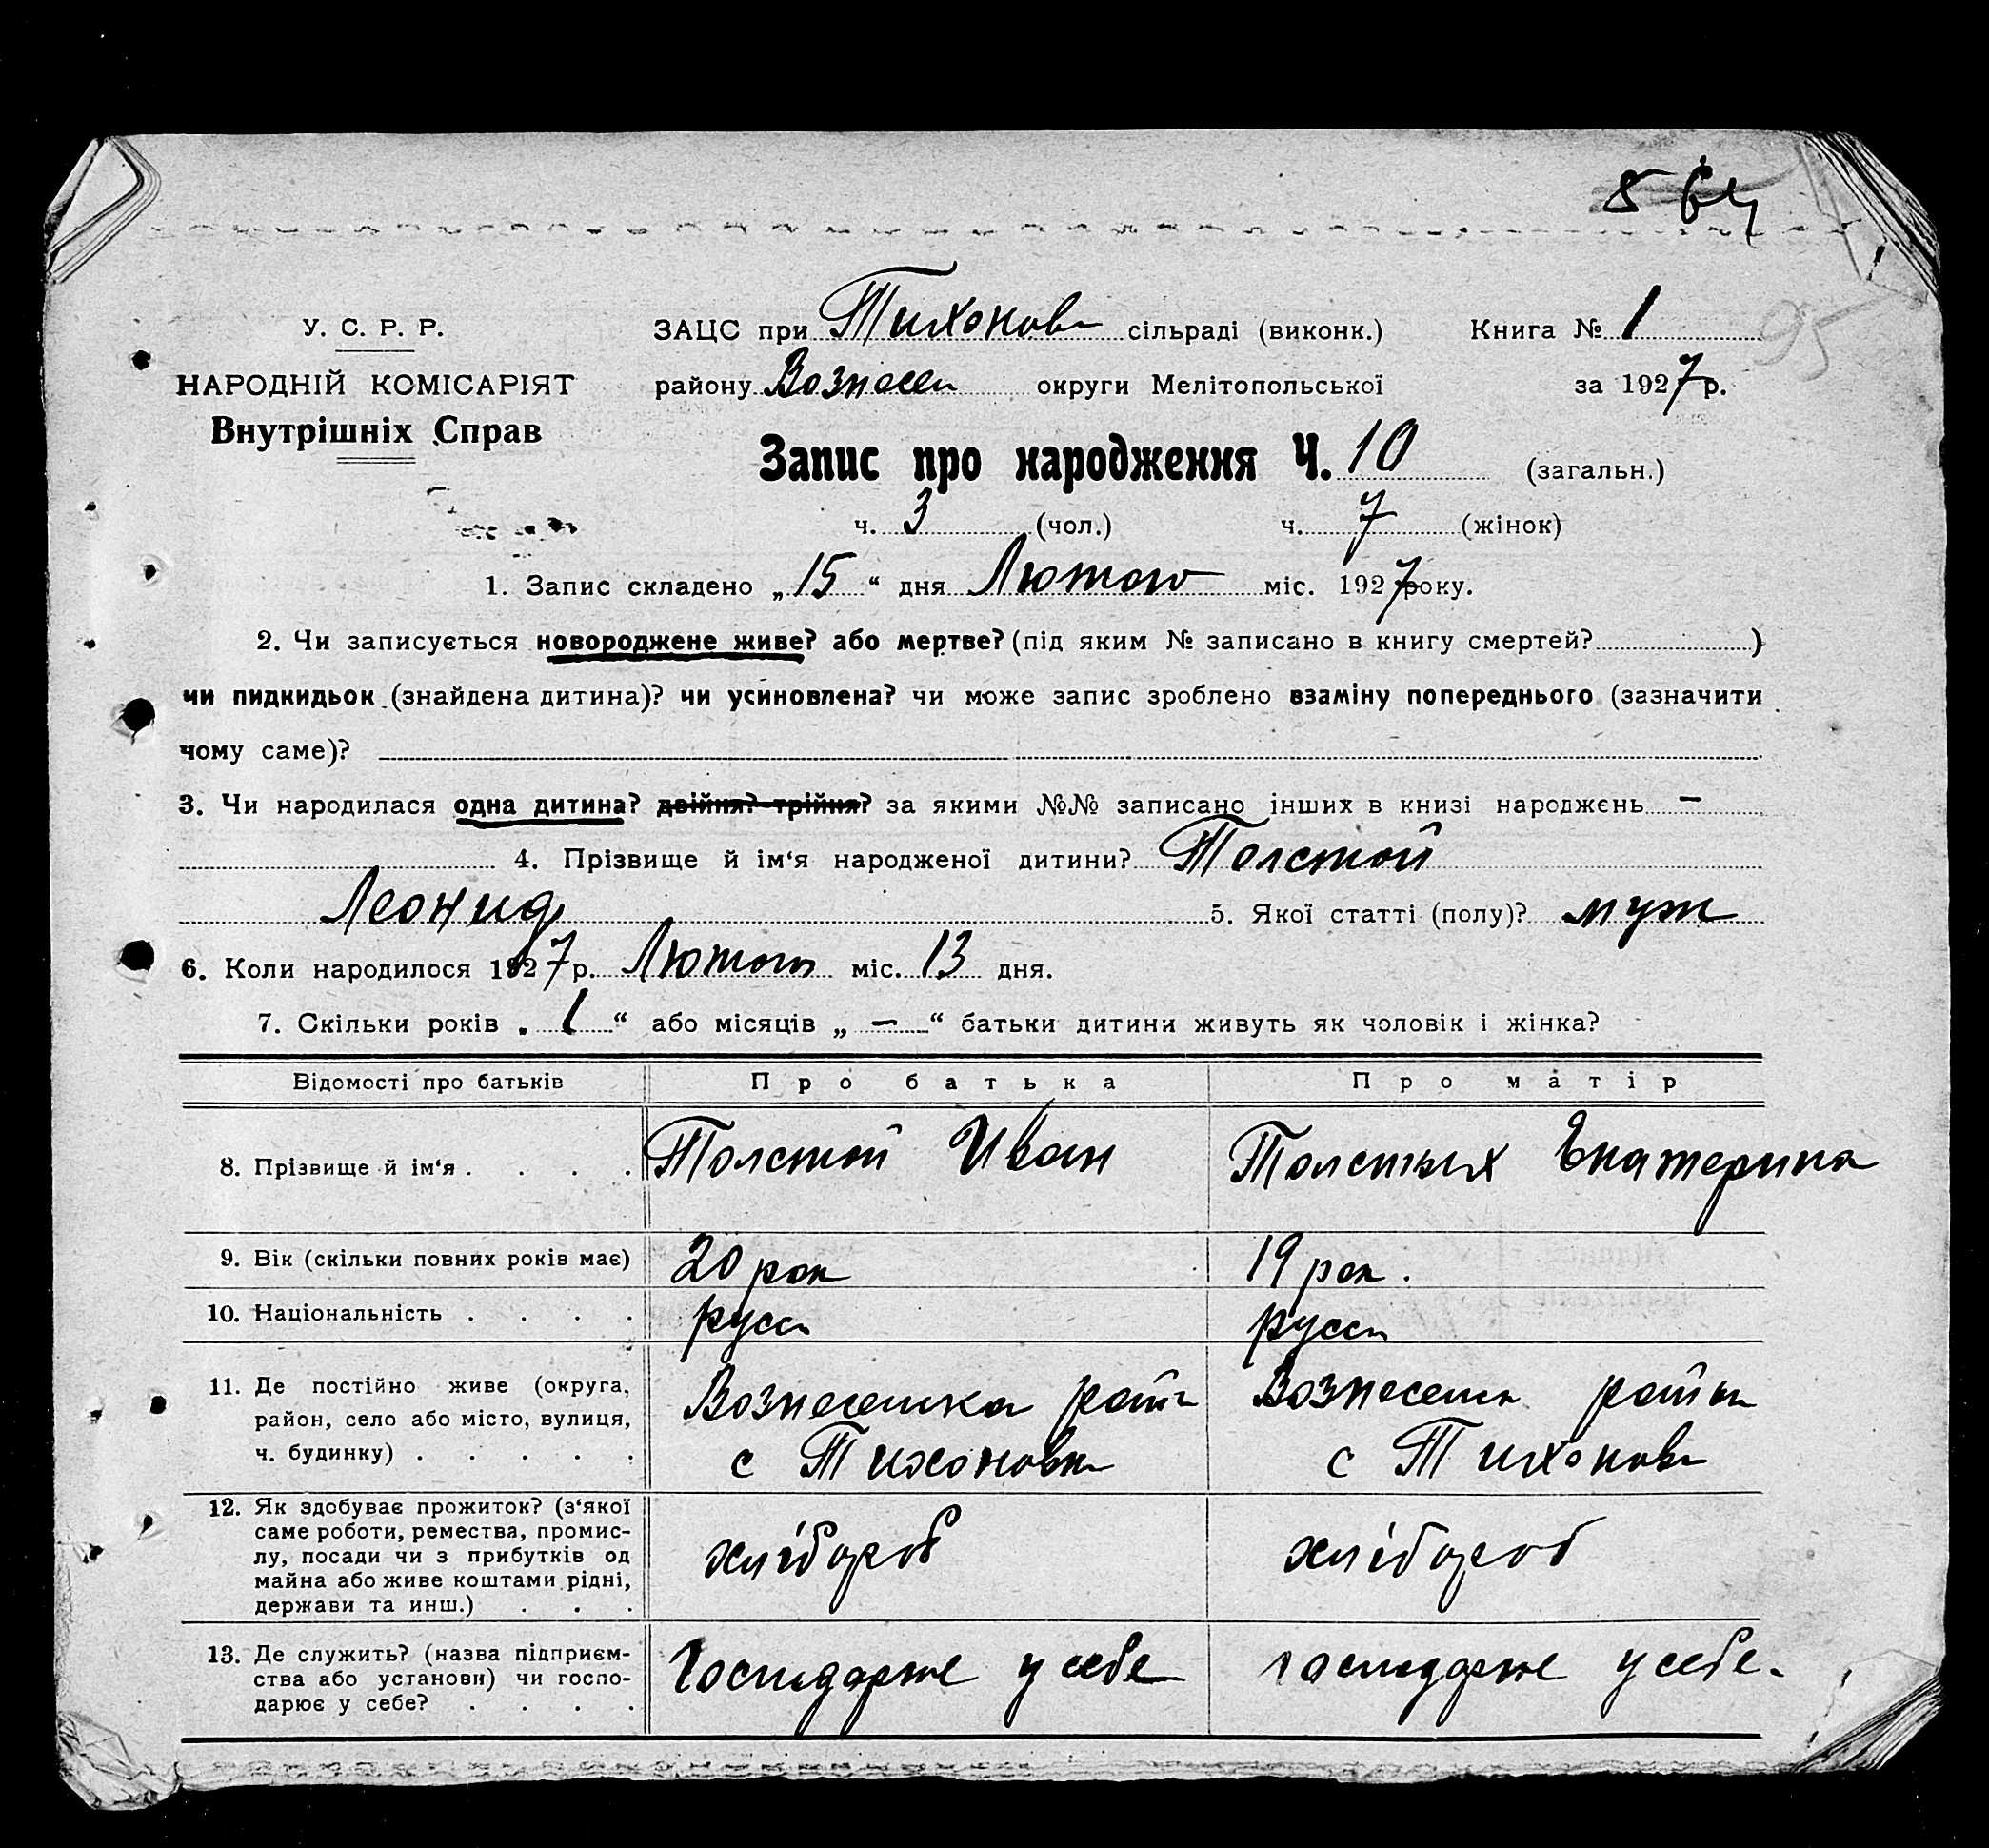 8 64
95
У. С. Р. Р.
НАРОДНІЙ КОМІСАРІЯТ
Внутрішніх Справ
ЗАЦС при Тихонов сільраді (виконк.) Книга № 1
району Вознесен округи Мелітопольської за 1927 р.
Запис про народження Ч. 10 (загальн.)
ч. 3 (чол.) ч. 7 (жінок)
1. Запис складено „15“ дня Лютого міс. 1927 року.
2. Чи записується новороджене живе? або мертве? (під яким № записано в книгу смертей? )
чи пидкидьок (знайдена дитина)? чи усиновлена? чи може запис зроблено взаміну попереднього (зазначити
чому саме)?
3. Чи народилася одна дитина? двійня? трійня? за якими №№ записано інших в книзі народжень —
4. Прізвище й ім‘я народженої дитини? Толстой
Леонид 5. Якої статті (полу)? муж
6. Коли народилося 1927 р. Лютого міс. 13 дня.
7. Скільки років „ 1 “ або місяців „ — “ батьки дитини живуть як чоловік і жінка?
Відомості про батьків Про батька Про матір
8. Прізвище й ім‘я . . . . Толстой Иван Толстых Екатерина
9. Вік (скільки повних років має) 20 рок 19 рок.
10. Національність . . . . русск русск
11. Де постійно живе (округа,
район, село або місто, вулиця,
ч. будинку) . . . . .
Вознесенка район
с Тихоновк
Вознесенк район
с Тихонов
12. Як здобуває прожиток? (з‘якої
саме роботи, ремества, промис-
лу, посади чи з прибутків од
майна або живе коштами рідні,
держави та инш.) . . .
хлібороб хлібороб
13. Де служить? (назва підприєм-
ства або установи) чи госпо-
дарює у себе? . . . .
Господарює у себе господарює у себе.